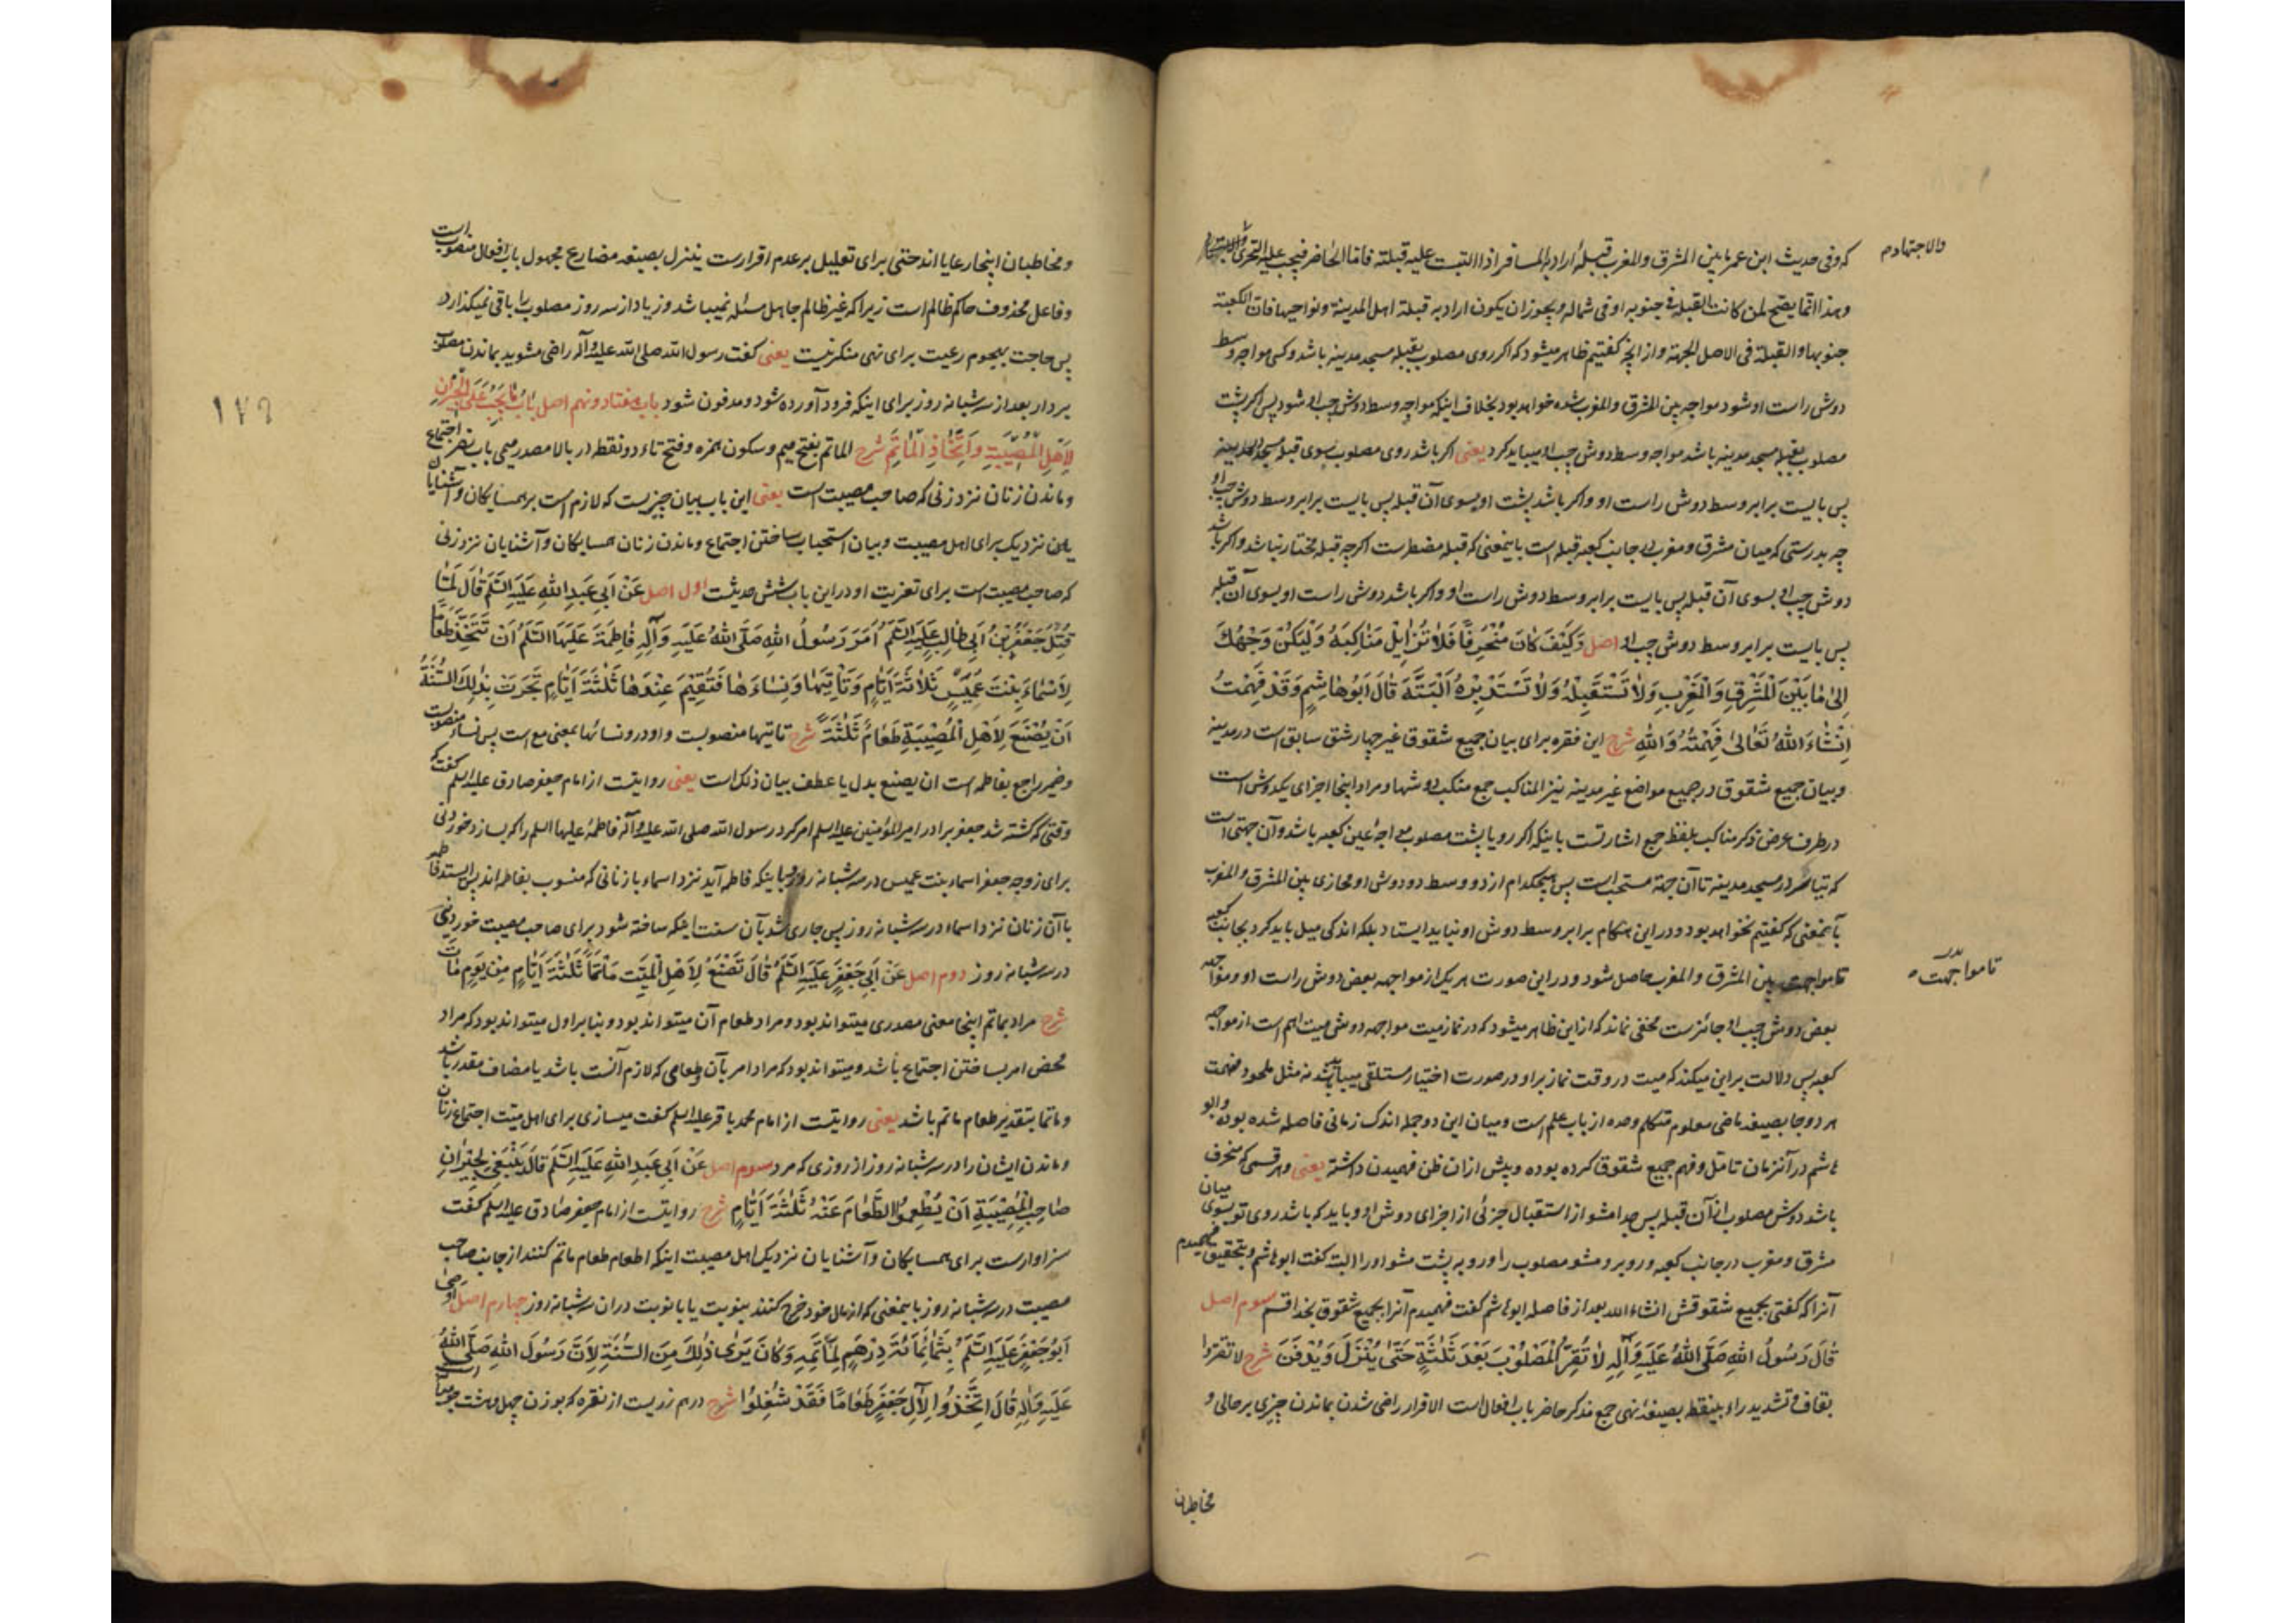 که و فی حدیث ابن عمر مابین المشرق والمغرب قبلة أراد به المسافر اذا التبست علیه قبلته فامّا الحاضر فیجب علیه التحری
والاجتهاد م
وهذا انّما یصح لمن کانت القبلة فی جنوبه او فی شماله ویجوز ان یکون اراد به قبلة اهل المدینة ونواحیها فانّ الکعبة
جنوبها والقبلة فی الاصل الجهة و از آنچه گفتیم ظاهر میشود که اکر روی مصلوب بقبله مسجد مدینه باشد و کسی مواجه وسط
دوش راست او شود مواجه بین المشرق والمغرب شده خواهد بود بخلاف اینکه مواجه وسط دوش چپ او شود پس اکر پشت
مصلوب بقبله مسجد مدینه باشد مواجه وسط دوش چپ او میباید کرد یعنی اکر باشد روی مصلوب بسوی قبله مسجد مدینه
پس بایست برابر وسط دوش راست او و اکر باشد پشت او بسوی آن قبله پس بایست برابر وسط دوش چپ او
چه بدرستی که میان مشرق و مغرب در جانب کعبه قبله است باینمعنی که قبله مضطر است اکرچه قبله مختار نباشد و اکر باشد
دوش چپ او بسوی آن قبله پس بایست برابر وسط دوش راست او و اکر باشد دوش راست او بسوی آن قبله
پس بایست برابر وسط دوش چپ او اصل وَکَیْفَ کانَ مُنْحَرِفًا فَلا تُزایِلْ مَناکِبَهُ وَلْیَکُنْ وَجْهُکَ
اِلیٰ ما بَیْنَ الْمَشْرِقِ وَالْمَغْرِبِ وَلا تَسْتَقْبِلْهُ وَلا تَسْتَدْبِرْهُ اَلْبَتَّةَ قالَ اَبُوهاشِمٍ وَقَدْ فَهِمْتُ
اِنْشاءَ اللهُ تَعالیٰ فَهِمْتُهُ وَاللهِ شرح این فقره برای بیان جمیع شقوق غیر چهار شق سابق است در مدینه
و بیان جمیع شقوق در جمیع مواضع غیر مدینه نیز المناکب جمع منکب دوشها و مراد اینجا اجزای یکدوش است
در طرف عرض و ذکر مناکب بلفظ جمع اشارتست باینکه اکر رو یا پشت مصلوب مواجه عین کعبه باشد و آن جهتی است
که تیاسر در مسجد مدینه تا آن جهة مستحب است پس هیچکدام از دو وسط دو دوش او محاذی بین المشرق والمغرب
بآنمعنی که گفتیم نخواهد بود و در این هنگام برابر وسط دوش او نباید ایستاد بلکه اندکی میل باید کرد بجانب کعبه
تا مواجهت بین المشرق والمغرب حاصل شود و در این صورت هر یک از مواجهه بعض دوش راست او و مواجهه
تا مواجهت ه
بعض دوش چپ او جائزست مخفی نماند که از این ظاهر میشود که در نماز میت مواجهه دوش میت اهم است از مواجهه
کعبه پس دلالت بر این میکند که میت در وقت نماز بر او در صورت اختیار مستلقی میباید باشد نه مثل ملحود فهمت
هر دو جا بصیغه ماضی معلوم متکلم وحده از باب علم است و میان این دو جمله اندک زمانی فاصله شده بوده و ابو
هاشم در آنزمان تامّل و فهم جمیع شقوق کرده بوده و پیش از ان ظن فهمیدن داشته یعنی و هر قسمی که منحرف
باشد دوش مصلوب از آن قبله پس جدا مشو از استقبال جزئی از اجزای دوش او و باید که باشد روی تو بسوی میان
مشرق و مغرب در جانب کعبه و روبرو مشو مصلوب را و رو به پشت مشو او را البتة کفت ابوهاشم و بتحقیق فهمیدم
آنرا که کفتی بجمیع شقوقش انشاء الله بعد از فاصله ابوهاشم کفت فهمیدم آنرا بجمیع شقوق بخدا قسم سوم اصل
قالَ رَسُولُ اللهِ صَلَّی اللهُ عَلَیْهِ وَآلِهِ لا تُقِرُّوا الْمَصْلُوبَ بَعْدَ ثَلٰثَةٍ حَتّیٰ یُنْزَلَ وَیُدْفَنَ شرح لا تقرّوا
بقاف و تشدید راء بینقطه بصیغه نهی جمع مذکر حاضر باب افعال است الاقرار راضی شدن بماندن چیزی بر حالی و
مخاطبان
و مخاطبان اینجا رعایا اند حتی برای تعلیل بر عدم اقرارست ینزل بصیغه مضارع مجهول باب افعال منصوب است
و فاعل محذوف حاکم ظالم است زیرا که غیر ظالم جاهل مسئله نمیباشد و زیاد از سه روز مصلوب را باقی نمیکذارد
پس حاجت بهجوم رعیت برای نهی منکر نیست یعنی کفت رسول الله صلی الله علیه وآله راضی مشوید بماندن مصلوب
بر دار بعد از سه شبانه روز برای اینکه فرود آورده شود و مدفون شود باب هفتاد و نهم اصل بابُ ما یَجِبُ عَلَی الْجِیرانِ
لِاَهْلِ الْمُصِیبَةِ وَاتِّخاذِ الْمَأْتَمِ شرح الماتم بفتح میم و سکون همزه و فتح تاء دو نقطه در بالا مصدر میمی باب نصر اجتماع
و ماندن زنان نزد زنی که صاحب مصیبت است یعنی این باب بیان چیزیست که لازم است بر همسایکان و آشنایان
نزدیک برای اهل مصیبت و بیان استحباب ساختن اجتماع و ماندن زنان همسایکان و آشنایان نزد زنی
که صاحب مصیبت است برای تعزیت او در این باب شش حدیثست اول اصل عَنْ اَبِی عَبْدِ اللهِ عَلَیْهِ السَّلَمُ قالَ لَمّا
قُتِلَ جَعْفَرُ بْنُ اَبِی طالِبٍ عَلَیْهِ السَّلَمُ اَمَرَ رَسُولُ اللهِ صَلَّی اللهُ عَلَیْهِ وَآلِهِ فاطِمَةَ عَلَیْهَا السَّلَمُ اَنْ تَتَّخِذَ طَعامًا
لِاَسْماءَ بِنْتِ عُمَیْسٍ ثَلاثَةَ اَیّامٍ وَتَأْتِیَها وَنِساءَها فَتُقِیمَ عِنْدَها ثَلٰثَةَ اَیّامٍ فَجَرَتْ بِذٰلِکَ السُّنَّةُ
اَنْ یُصْنَعَ لِاَهْلِ الْمُصِیبَةِ طَعامٌ ثَلٰثَةً شرح تاتیها منصوبست و واو در و نسائها بمعنی مع است پس نساء منصوبست
و ضمیر راجع بفاطمه است ان یصنع بدل یا عطف بیان ذلک است یعنی روایتست از امام جعفر صادق علیه السلم کفت که
وقتی که کشته شد جعفر برادر امیر المؤمنین علیه السلم امر کرد رسول الله صلی الله علیه وآله فاطمهٔ علیها السلم را که بسازد خوردنی
برای زوجه جعفر اسماء بنت عمیس در سه شبانه روز و باینکه فاطمه آید نزد اسماء با زنانی که منسوب بفاطمه اند پس ایستد فاطمه
با آن زنان نزد اسماء در سه شبانه روز پس جاری شد بآن سنت اینکه ساخته شود برای صاحب مصیبت خوردنی
در سه شبانه روز دوم اصل عَنْ اَبِی جَعْفَرٍ عَلَیْهِ السَّلَمُ قالَ تَصْنَعُ لِاَهْلِ الْمَیِّتِ مَأْتَمًا ثَلٰثَةَ اَیّامٍ مِنْ یَوْمِ ماتَ
شرح مراد بماتم اینجا معنی مصدری میتواند بود و مراد طعام آن میتواند بود و بنا بر اول میتواند بود که مراد
محض امر بساختن اجتماع باشد و میتواند بود که مراد امر بآن و طعامی که لازم آنست باشد یا مضاف مقدر باشد
و ماتما بتقدیر طعام ماتم باشد یعنی روایتست از امام محمد باقر علیه السلم کفت میسازی برای اهل میّت اجتماع زنان
و ماندن ایشان را در سه شبانه روز از روزی که مرد سوم اصل عَنْ اَبِی عَبْدِ اللهِ عَلَیْهِ السَّلَمُ قالَ یَنْبَغِی لِجِیرانِ
صاحِبِ الْمُصِیبَةِ اَنْ یُطْعِمُوا الطَّعامَ عَنْهُ ثَلٰثَةَ اَیّامٍ شرح روایتست از امام جعفر صادق علیه السلم کفت
سزاوارست برای همسایکان و آشنایان نزدیک اهل مصیبت اینکه اطعام طعام ماتم کنند از جانب صاحب
مصیبت در سه شبانه روز باینمعنی که از مال خود خرج کنند بنوبت یا بانوبت در ان سه شبانه روز چهارم اصل اَوْصیٰ
اَبُو جَعْفَرٍ عَلَیْهِ السَّلَمُ بِثَمانِمائَةِ دِرْهَمٍ لِمَأْتَمِهِ وَکانَ یَریٰ ذٰلِکَ مِنَ السُّنَّةِ لِاَنَّ رَسُولَ اللهِ صَلَّی اللهُ
عَلَیْهِ وَآلِهِ قالَ اتَّخِذُوا لِآلِ جَعْفَرٍ طَعامًا فَقَدْ شُغِلُوا شرح درهم زریست از نقره که بوزن چهل و هشت جو
۱۷۶